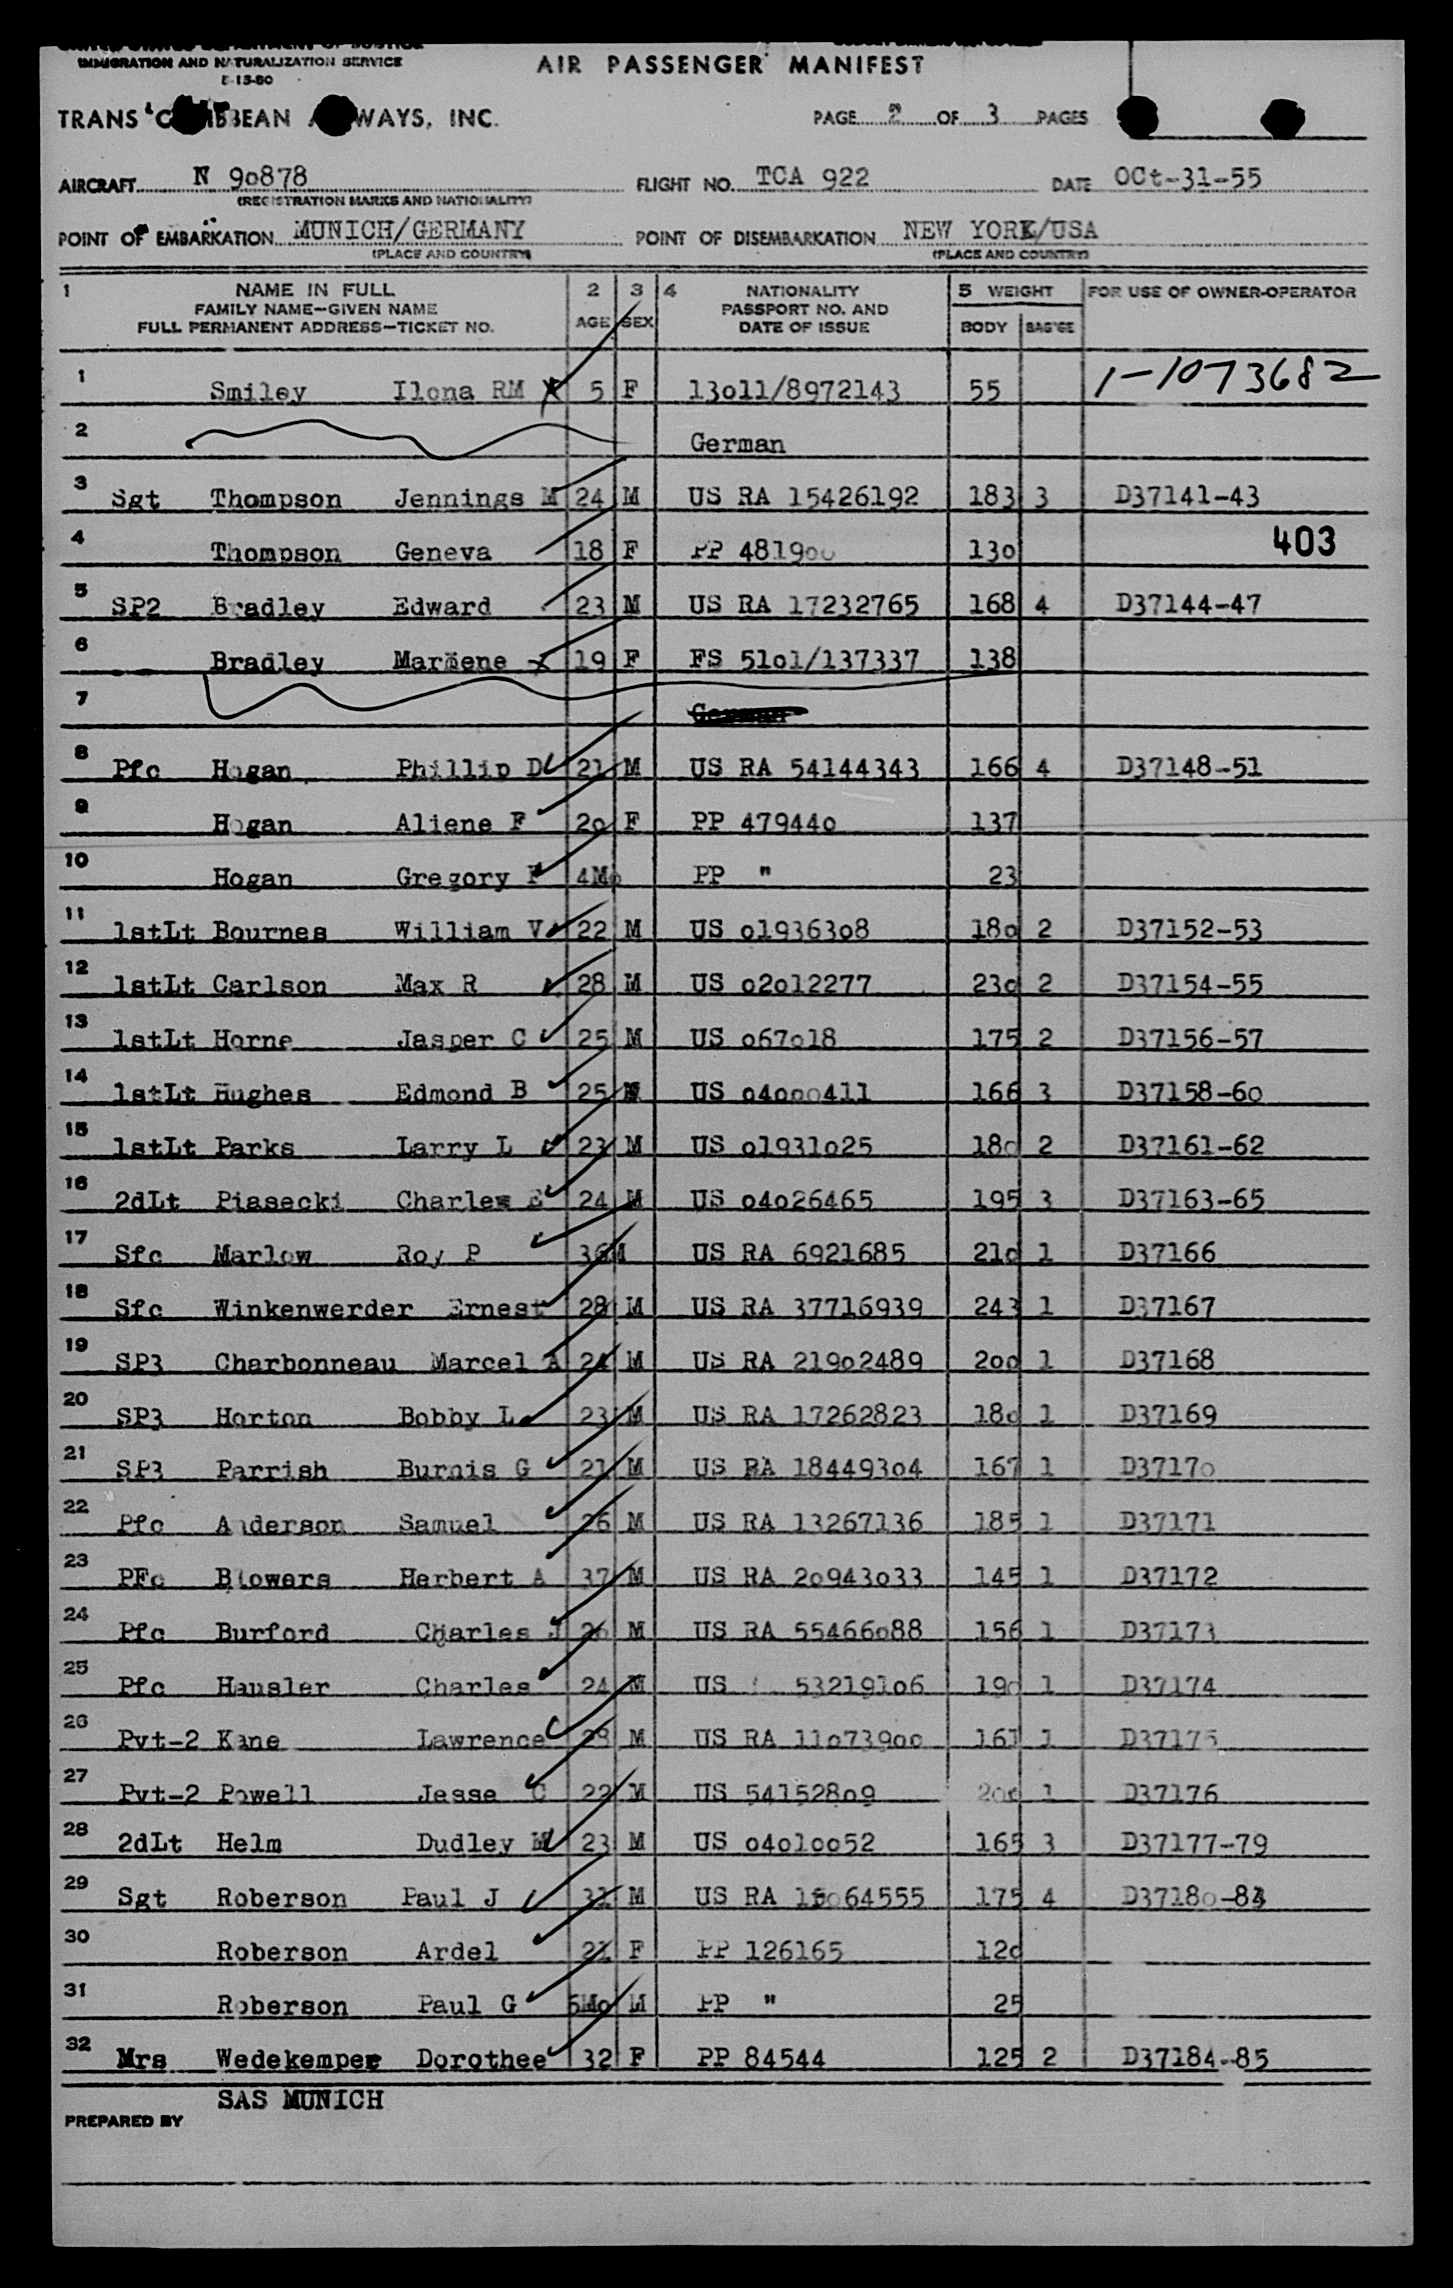 UNITED STATES DEPARTMENT OF JUSTICE
IMMIGRATION AND NATURALIZATION SERVICE
AIR PASSENGER MANIFEST
TRANS CARIBBEAN AIRWAYS, INC.
PAGE 2 OF 3 PAGES
AIRCRAFT N 90878 FLIGHT NO. TCA 922 DATE OCt-31-55
(REGISTRATION MARKS AND NATIONALITY)
POINT OF EMBARKATION MUNICH/GERMANY POINT OF DISEMBARKATION NEW YORK/USA
(PLACE AND COUNTRY) (PLACE AND COUNTRY)
1 NAME IN FULL 2 3 4 NATIONALITY 5 WEIGHT FOR USE OF OWNER-OPERATOR
FAMILY NAME-GIVEN NAME AGE SEX PASSPORT NO. AND
FULL PERMANENT ADDRESS-TICKET NO. DATE OF ISSUE BODY BAG'GE
1 Smiley Ilona RM 5 F 13o11/8972143 55 1-1073682
2 German
3 Sgt Thompson Jennings M 24 M US RA 15426192 183 3 D37141-43
4 Thompson Geneva 18 F PP 4819oo 13o 403
5 SP2 Bradley Edward 23 M US RA 17232765 168 4 D37144-47
6 Bradley 19 F FS 51o1/137337 138
7 German
8 Pfc Hogan Phillip D 21 M US RA 54144343 166 4 D37148-51
9 Hogan Aliene F 2o F PP 47944o 137
10 Hogan Gregory F 4Mo PP " 23
11 1stLt Bournes William V 22 M US o19363o8 18o 2 D37152-53
12 1stLt Carlson Max R 28 M US o2o12277 23o 2 D37154-55
13 1stLt Horne Jasper C 25 M US o67o18 175 2 D37156-57
14 1stLt Hughes Edmond B 25 M US o4ooo411 166 3 D37158-6o
15 1stLt Parks Larry L 23 M US o1931o25 18o 2 D37161-62
16 2dLt Piasecki Charles E 24 M US o4o26465 195 3 D37163-65
17 Sfc Marlow Roy P 36 M US RA 6921685 21o 1 D37166
18 Sfc Winkenwerder Ernest 28 M US RA 37716939 243 1 D37167
19 SP3 Charbonneau Marcel A 24 M US RA 219o2489 2oo 1 D37168
20 SP3 Horton Bobby L 23 M US RA 17262823 18o 1 D37169
21 SP3 Parrish Burnis G 21 M US RA 184493o4 167 1 D3717o
22 Pfc Anderson Samuel 26 M US RA 13267136 185 1 D37171
23 PFc Blowers Herbert A 37 M US RA 2o943o33 145 1 D37172
24 Pfc Burford Charles J 26 M US RA 55466o88 156 1 D37173
25 Pfc Hausler Charles 24 M US 532191o6 19o 1 D37174
26 Pvt-2 Kane Lawrence 28 M US RA 11o739oo 161 1 D37175
27 Pvt-2 Powell Jesse C 22 M US 541528o9 2oo 1 D37176
28 2dLt Helm Dudley M 23 M US o4o1oo52 165 3 D37177-79
29 Sgt Roberson Paul J M US RA 175 4 D3718o-83
30 Roberson Ardel 21 F PP 126165 12o
31 Roberson Paul G 5Mo M PP " 25
32 Mrs Wedekemper Dorothee 32 F PP 84544 125 2 D37184-85
SAS MUNICH
PREPARED BY